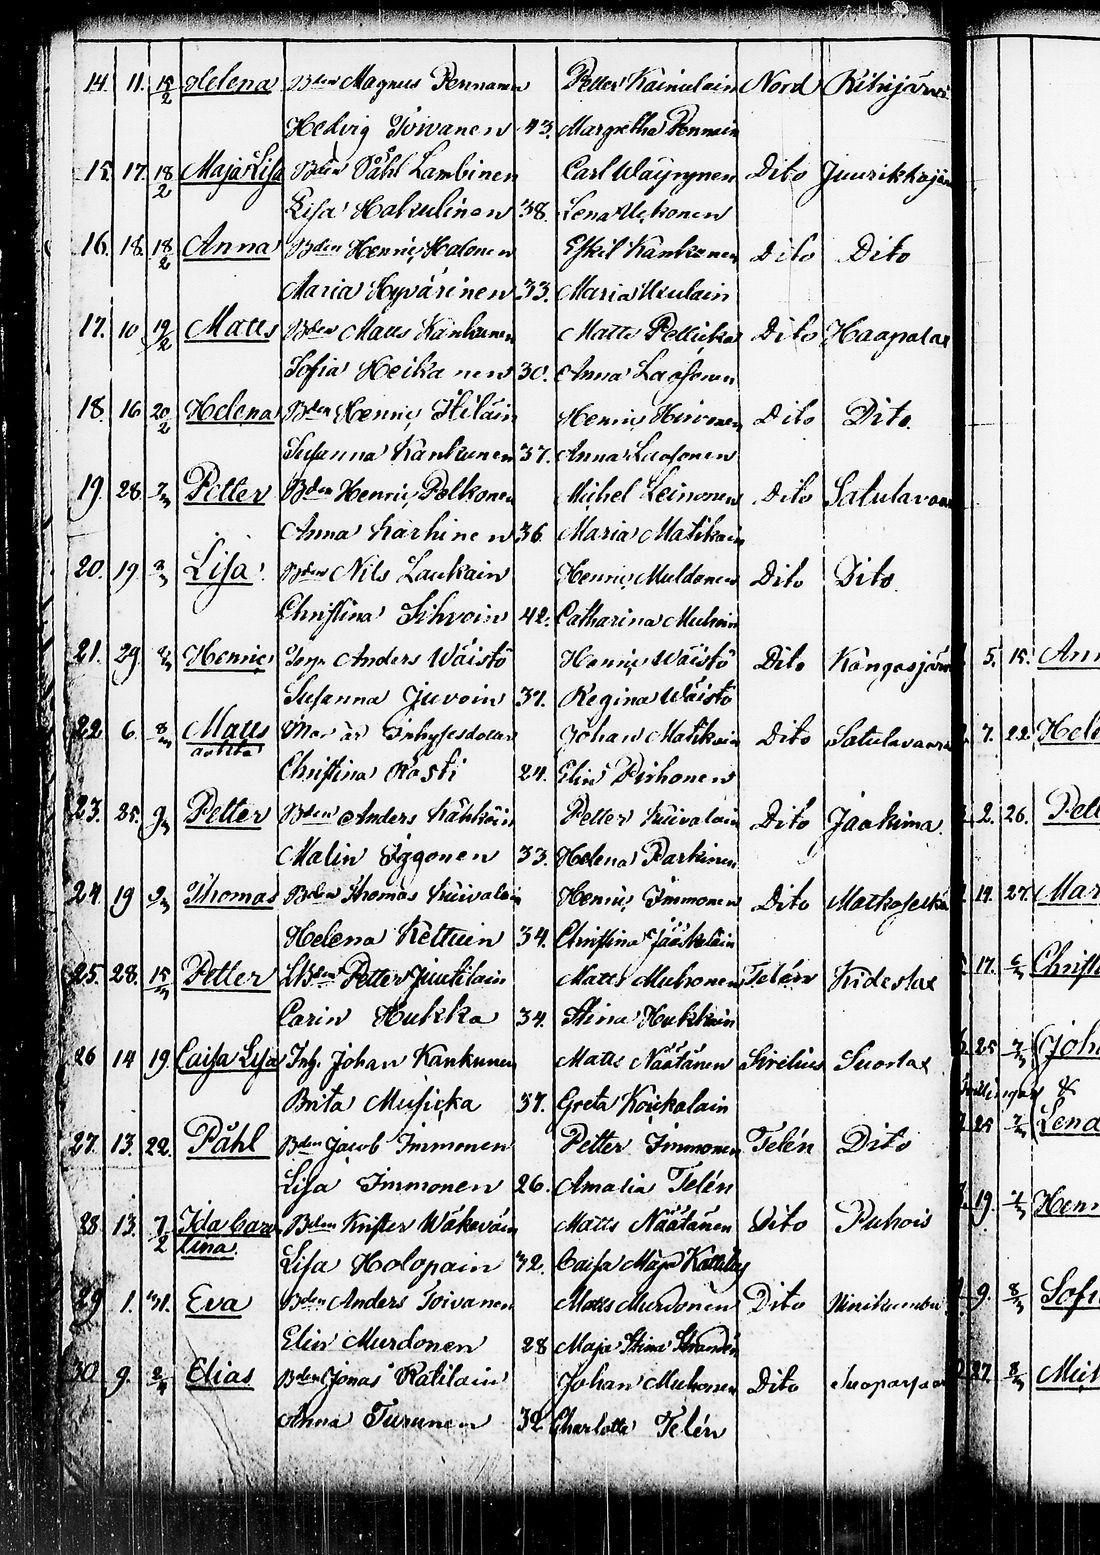 14. 11. 15/2 Helena Bden Magnus Pennanen Petter Kainulain Nord Kitkijärvi
Hedvig Toivanen 43. Margretha Pennain
15. 17. 18/2 Maja Lisa Bden Påhl Lambinen Carl Wäyrynen Dito Juurikkajär
Lisa Hakulinen 38. Lena Uckonen
16. 18. 18/2 Anna Bden Henric Halonen Eskil Kankonen Dito Dito
Maria Hyvärinen 33. Maria Mulain
17. 10 19/2 Matts Bden Matts Kankunen Matts Pellicka Dito Haapalax
Sofia Heikanen 30. Anna Laasonen
18. 16 20/2 Helena Bden Henric Hiläin Henric Hirvonen Dito Dito.
Susanna Kankunen 37. Anna Laasonen
19. 28 7/3 Petter Bden Henric Polkonen Michel Leinonen Dito Satulavaar
Anna Karhinen 36. Maria Matikain
20. 19 Lisa Bden Nils Laukain Henric Muldonen Dito Dito
Christina Sihvoin 42. Catharina Muhoin
21. 29. 8/3 Henric Anders Wäistö Henric Wäistö Dito Kangasjärv
Susanna Juvoin 37. Regina Wäistö
22. 6. 8/3 Matts oäkta Mor är Inhysesdotter Johan Matikain Dito Satulavaara
Christina Rosti 24. Elin Pirhonen
23. 25. 9/3 Petter Bden Anders Kähköin Petter Kuivalain Dito Jaakima
Malin Iggonen 33. Helena Parkinen
24. 19 Thomas Bden Thomas Kuivalain Henric Immonen Dito Matkaselkä
Helena Kettuin 34. Christina Jääskelain
25. 28. 15/3 Petter LBden Petter Juutilain Matts Muhonen Telén Kideslax
Carin Hukka 34. Stina Hukkain
26 14 19. Caisa Lisa Inh. Johan Kankunen Matts Näätänen Sirelius Suorlax
Brita Musicka 37. Greta Koukalain
27. 13. 22. Påhl Bden Jacob Immonen Petter Immonen Telén Dito
Lisa Immonen 26. Amalia Telén
28 13. 7/2 Ida Caro Bden Krister Wäkeväin Matts Näätänen Dito Puhois
lina. Lisa Holopain 32. Caisa Maja
29 1. 31. Eva Bden Anders Toivanen Matts Murdonen Dito Niinikumbu
Elin Murdonen 28 Maja Stina Strandén
30 9. Elias Bden Jonas Ratilain Johan Muhonen Dito
Anna Turunen 32 Charlotta Telén
5. 15. Ann
7. 22. Hele
2. 26. Pett
14. 27. Mar
17. Christ
25 7/3 Joh
&
25 7/3 Lena
19. Henr
9. 8/3 Sofi
27. 8/3 Mich